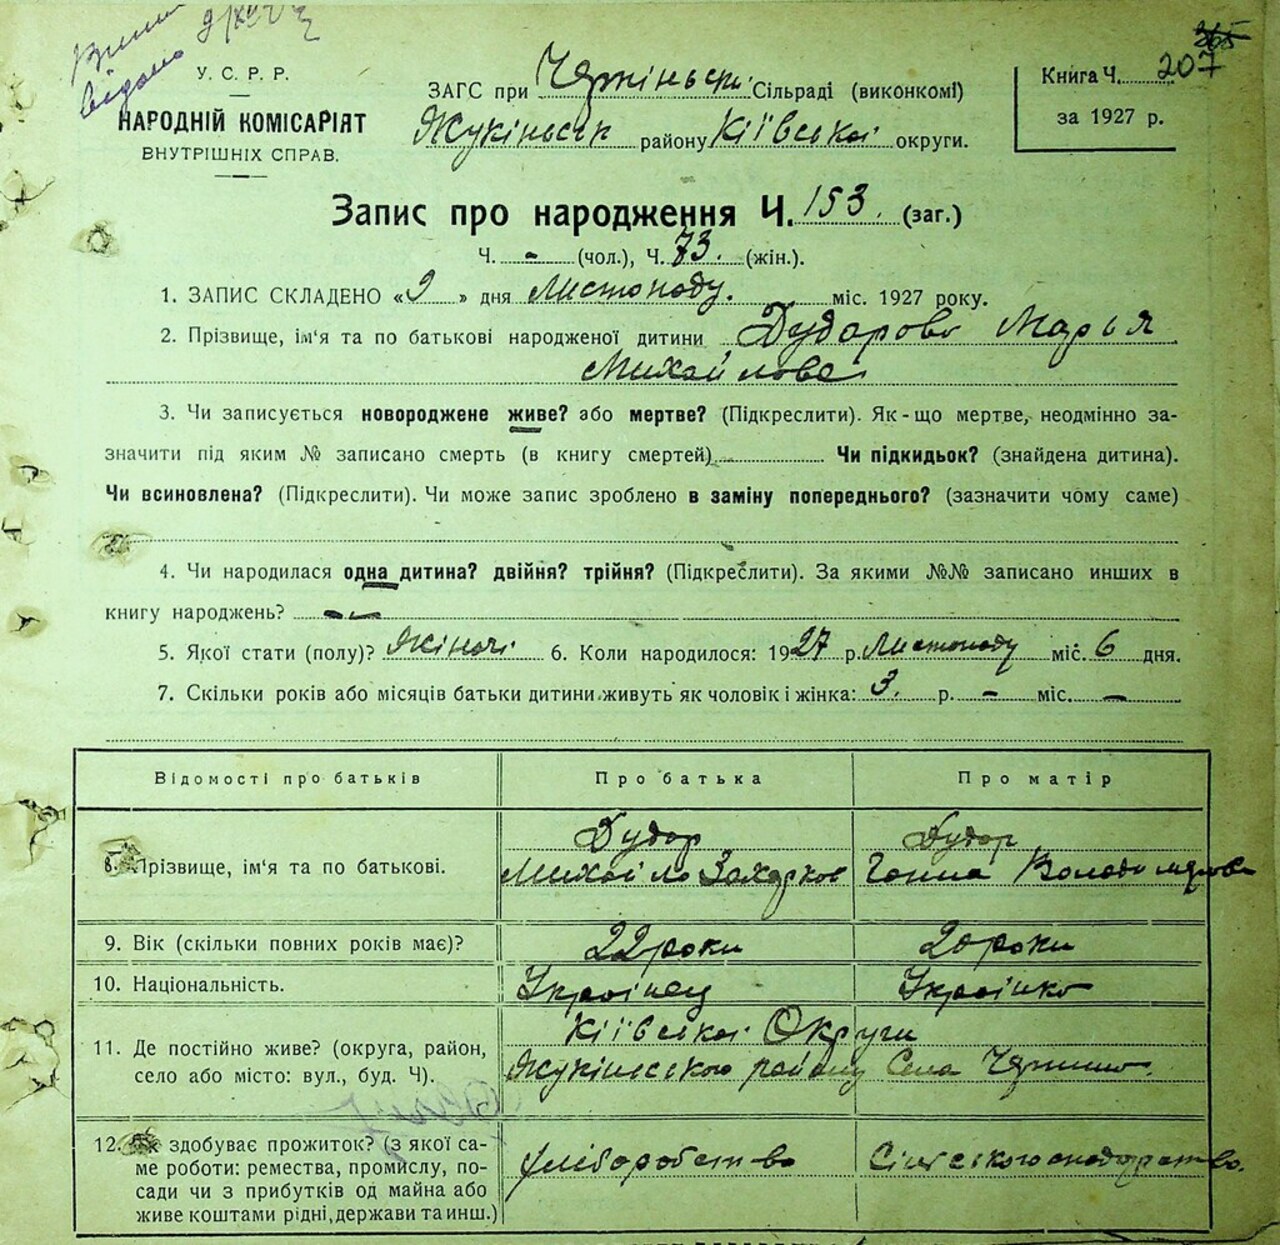 видано
365
207
У. С. Р. Р.
НАРОДНІЙ КОМІСАРІЯТ
ВНУТРІШНІХ СПРАВ.
ЗАГС при Сільраді (виконкомі)
Жукінськ району Київської округи.
Книга Ч. 207
за 1927 р.
Запис про народження Ч. 153. (заг.)
Ч. - (чол.), Ч. 73. (жін.).
1. ЗАПИС СКЛАДЕНО «9» дня Листопаду. міс. 1927 року.
2. Прізвище, ім'я та по батькові народженої дитини Дударова Марья
Михайлова
3. Чи записується новороджене живе? або мертве? (Підкреслити). Як-що мертве, неодмінно за-
значити під яким № записано смерть (в книгу смертей) - Чи підкидьок? (знайдена дитина).
Чи всиновлена? (Підкреслити). Чи може запис зроблено в заміну попереднього? (зазначити чому саме)
4. Чи народилася одна дитина? двійня? трійня? (Підкреслити). За якими №№ записано инших в
книгу народжень? - -
5. Якої статі (полу)? Жіночі 6. Коли народилося: 1927 р. Листопаду міс. 6 дня.
7. Скільки років або місяців батьки дитини живуть як чоловік і жінка: 3. р. - міс. -
Відомості про батьків Про батька Про матір
8. Прізвище, ім'я та по батькові.
Дудар
Михайло Захарков
Дудар
Ганна Володимирова
9. Вік (скільки повних років має)? 22 роки 20 роки
10. Національність. Українец Українка
11. Де постійно живе? (округа, район,
село або місто: вул., буд. Ч).
Київської Округи
Жукінського району Села
12. Як здобуває прожиток? (з якої са-
ме роботи: ремества, промислу, по-
сади чи з прибутків од майна або
живе коштами рідні, держави та инш.)
хліборобство